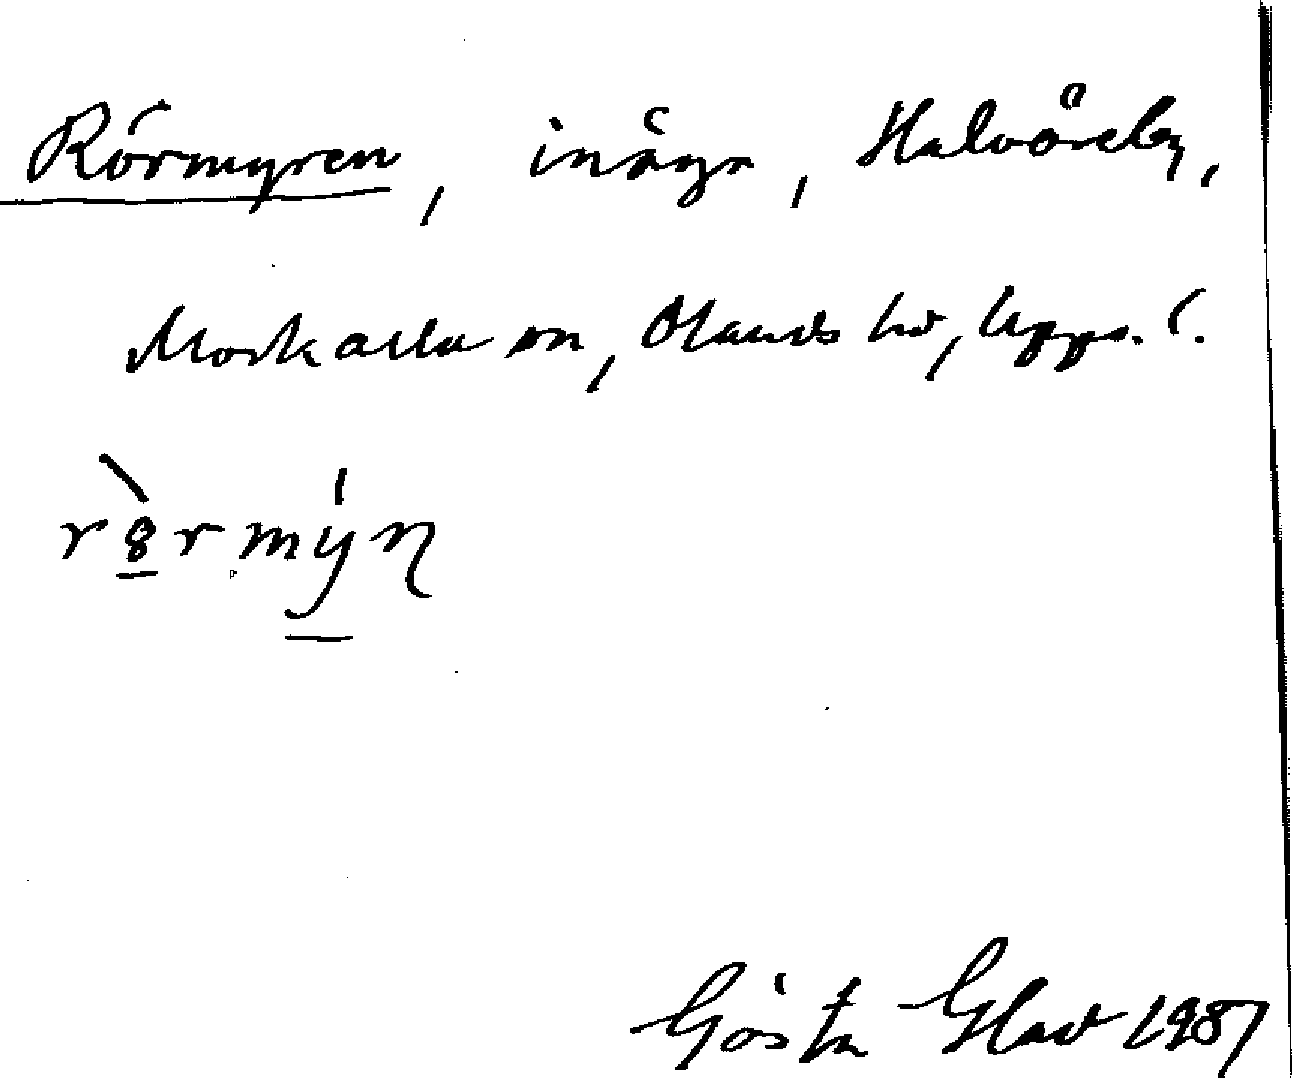 Rörmyren, inäga, Halvörsby,
Morkarla sn, Olands hd, Upps. l.
rö̀rmýn
Gösta Glad 1987